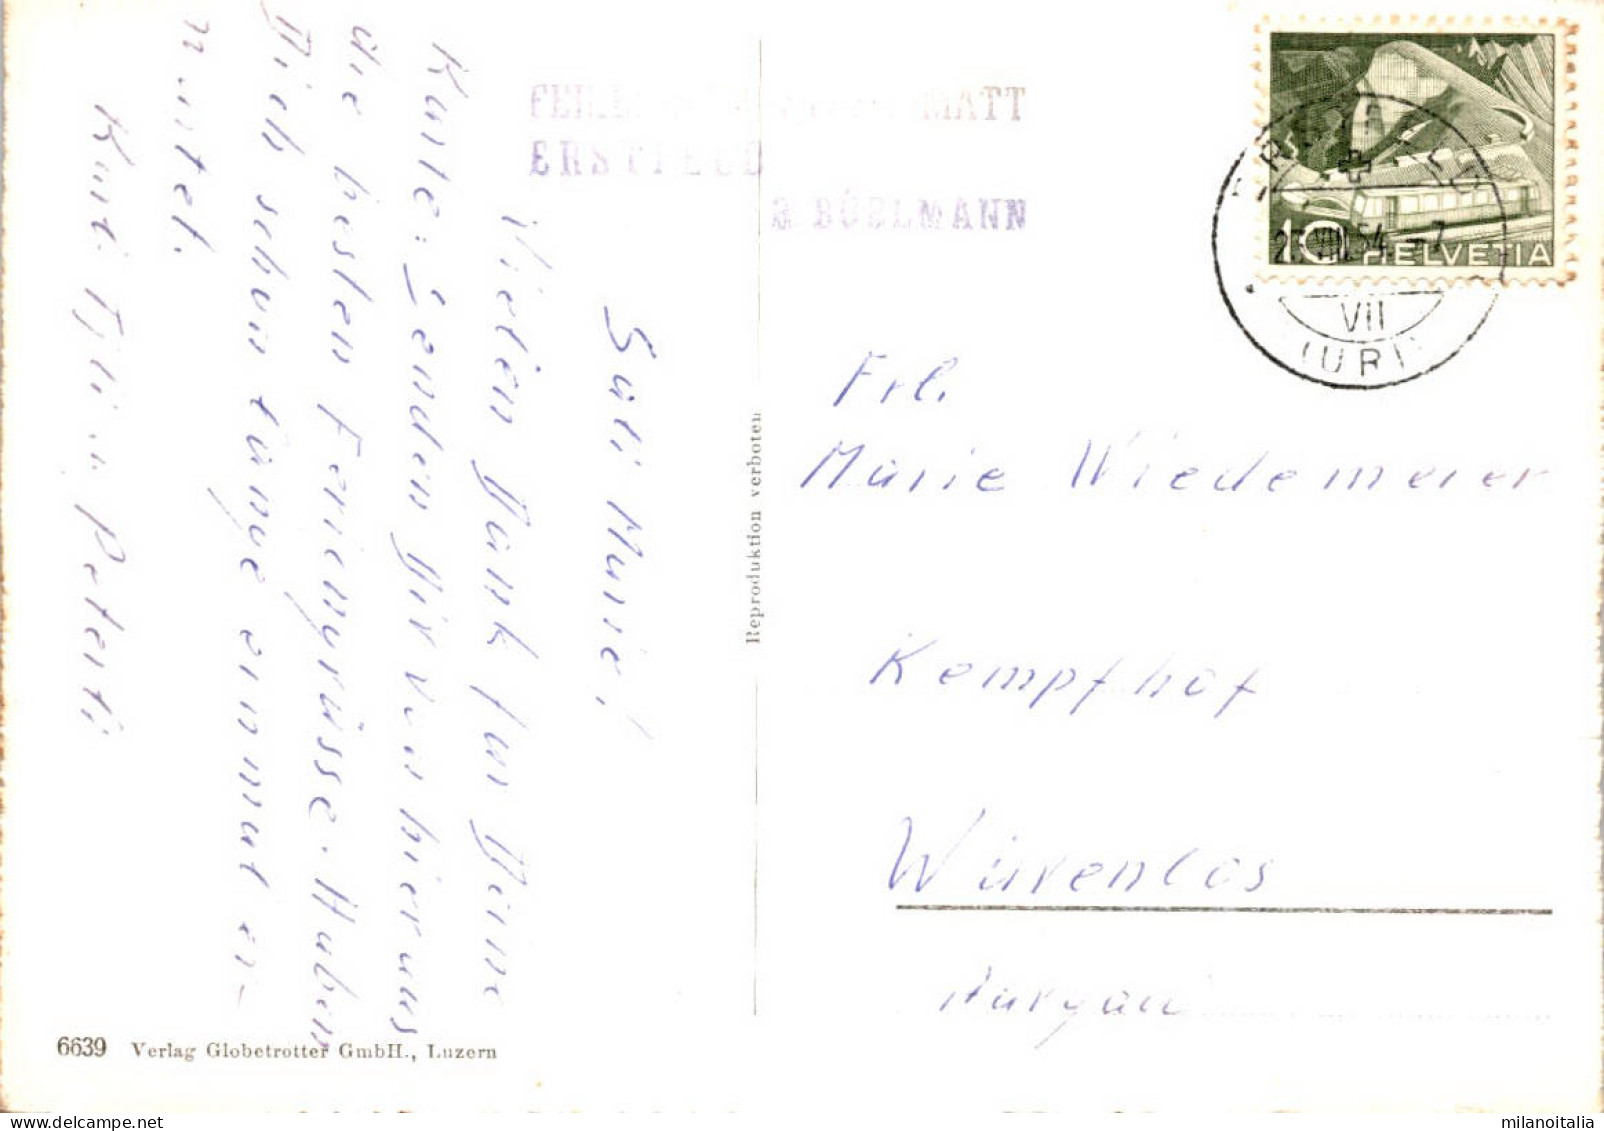 Sali Marie!
Vielen Dank für Deine
Karte. Senden Dir von hier aus
die besten Feriengrüsse. Haben
Dich schon lange einmal er-
wartet.
Kari Peterli
MATT
ERSTFELD
BÜELMANN
10 HELVETIA
VIII 54 - 7
VII
(URI)
Frl.
Marie Wiedemeier
Kempfhof
Würenlos
Aargau
Reproduktion verboten
6639 Verlag Globetrotter GmbH., Luzern
milanoitalia